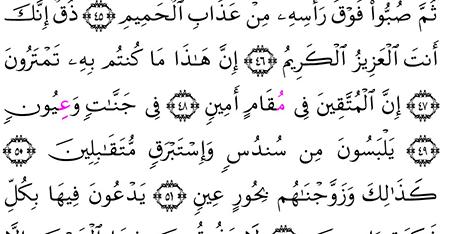 ثُمَّ صُبُّوا۟ فَوْقَ رَأْسِهِۦ مِنْ عَذَابِ ٱلْحَمِيمِ ﴿٤٥﴾ ذُقْ إِنَّكَ
أَنتَ ٱلْعَزِيزُ ٱلْكَرِيمُ ﴿٤٦﴾ إِنَّ هَـٰذَا مَا كُنتُم بِهِۦ تَمْتَرُونَ
﴿٤٧﴾ إِنَّ ٱلْمُتَّقِينَ فِى مُقَامٍ أَمِينٍ ﴿٤٨﴾ فِى جَنَّـٰتٍ وَعِيُونٍ
﴿٤٩﴾ يَلْبَسُونَ مِن سُندُسٍ وَإِسْتَبْرَقٍ مُّتَقَـٰبِلِينَ ﴿٥٠﴾
كَذَٰلِكَ وَزَوَّجْنَـٰهُم بِحُورٍ عِينٍ ﴿٥١﴾ يَدْعُونَ فِيهَا بِكُلِّ